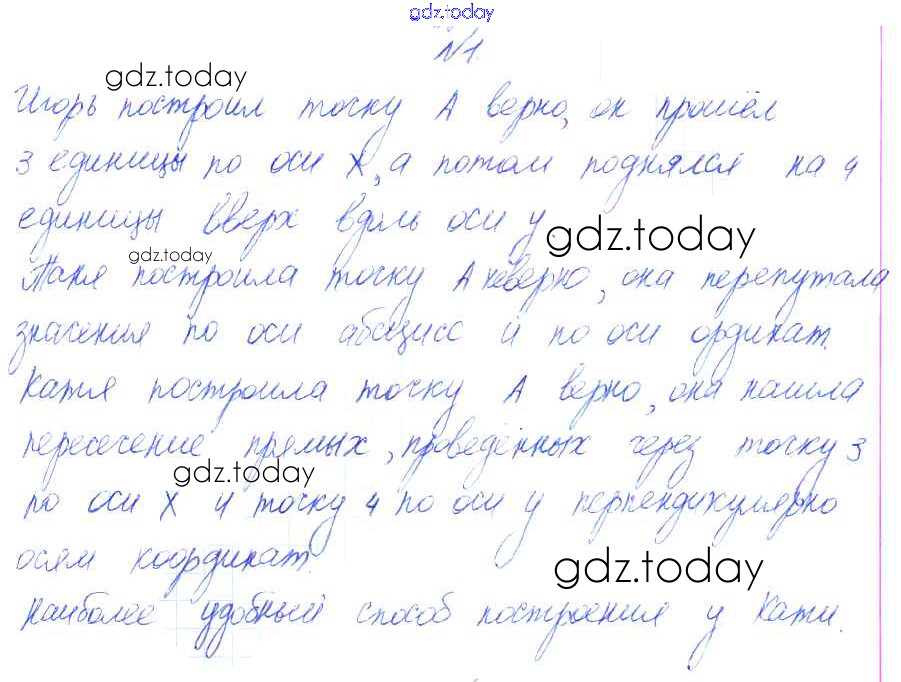 gdz.today
№1.
gdz.today
Игорь построил точку А верно, он прошёл
3 единицы по оси X, а потом поднялся на 4
единицы вверх вдоль оси y.
gdz.today
gdz.today
Таня построила точку А неверно, она перепутала
значения по оси абсцисс и по оси ординат.
Катя построила точку А верно, она нашла
пересечение прямых, проведённых через точку 3
gdz.today
по оси X и точку 4 по оси y перпендикулярно
осям координат.
gdz.today
Наиболее удобный способ построения у Кати.